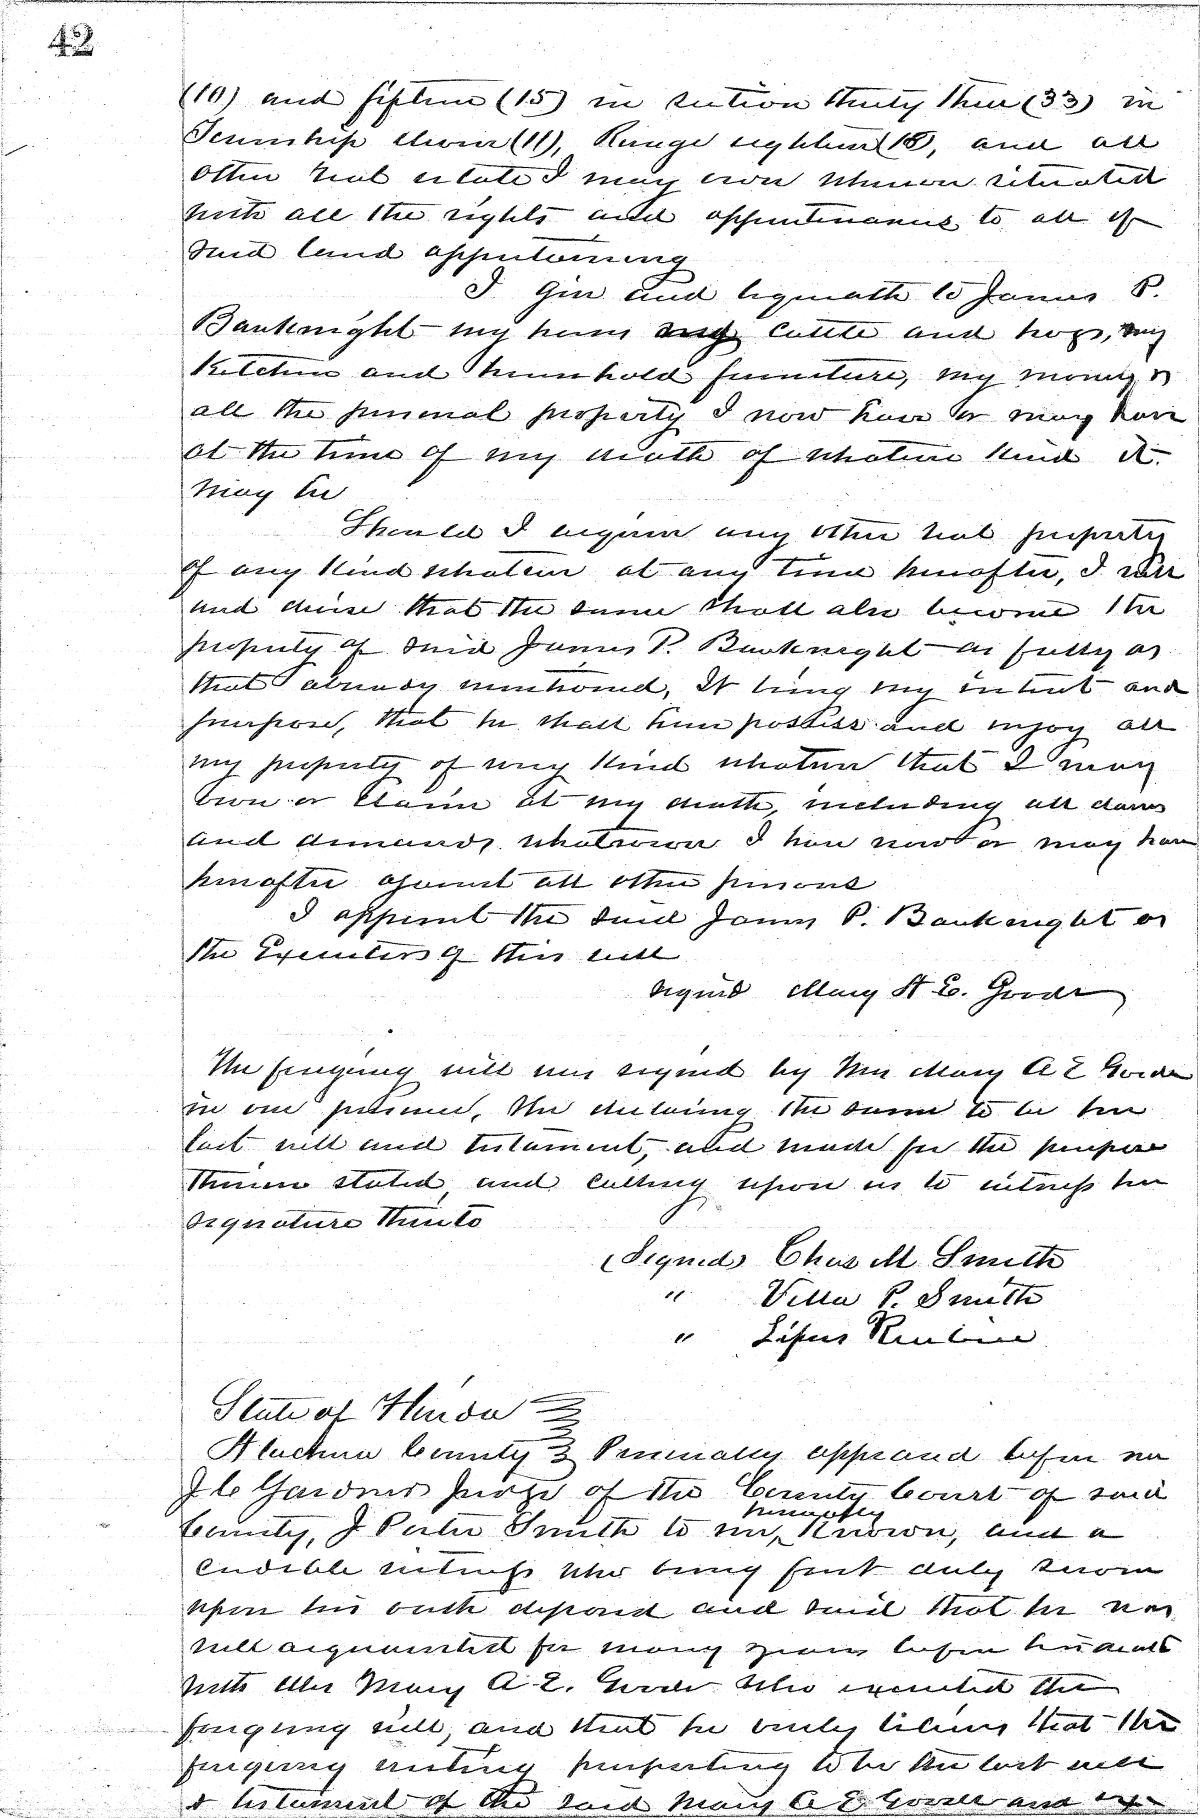 42
(10) and fifteen (15) in section thirty three (33) in
Township eleven (11), Range eighteen (18), and all
other real estate I may own wherever situated
with all the rights and appurtenances to all of
said land appertaining
I give and bequeath to James P.
Bauknight my horses my cattle and hogs, my
Kitchen and household furniture, my money &
all the personal property I now have or may have
at the time of my death of whatever kind it
may be
Should I acquire any other real property
of any kind whatever at any time hereafter, I will
and devise that the same shall also become the
property of said James P. Bauknight as fully as
that already mentioned, It being my intent and
purpose, that he shall have possess and enjoy all
my property of any kind whatever that I may
own or claim at my death, including all claims
and demands whatsoever I have now or may have
hereafter against all other persons
I appoint the said James P. Bauknight as
the Executor of this will
signed Mary A E. Goode
The foregoing will was signed by Mrs Mary A E Goode
in our presence, she declaring the same to be her
last will and testament, and made for the purpose
therein stated, and calling upon us to witness her
signature thereto
(Signed) Chas M Smith
" Villa P. Smith
"
State of Florida
Alachua County Personally appeared before me
J C Gardner Judge of the County Court of said
County, J Porter Smith to me, personally Known, and a
credible witness who being first duly sworn
upon his oath deposed and said that he was
well acquainted for many years before her death
with Mrs Mary A. E. Goode who executed the
foregoing will, and that he verily believes that the
foregoing writing purporting to be the last will
& testament of the said Mary A E Goode and